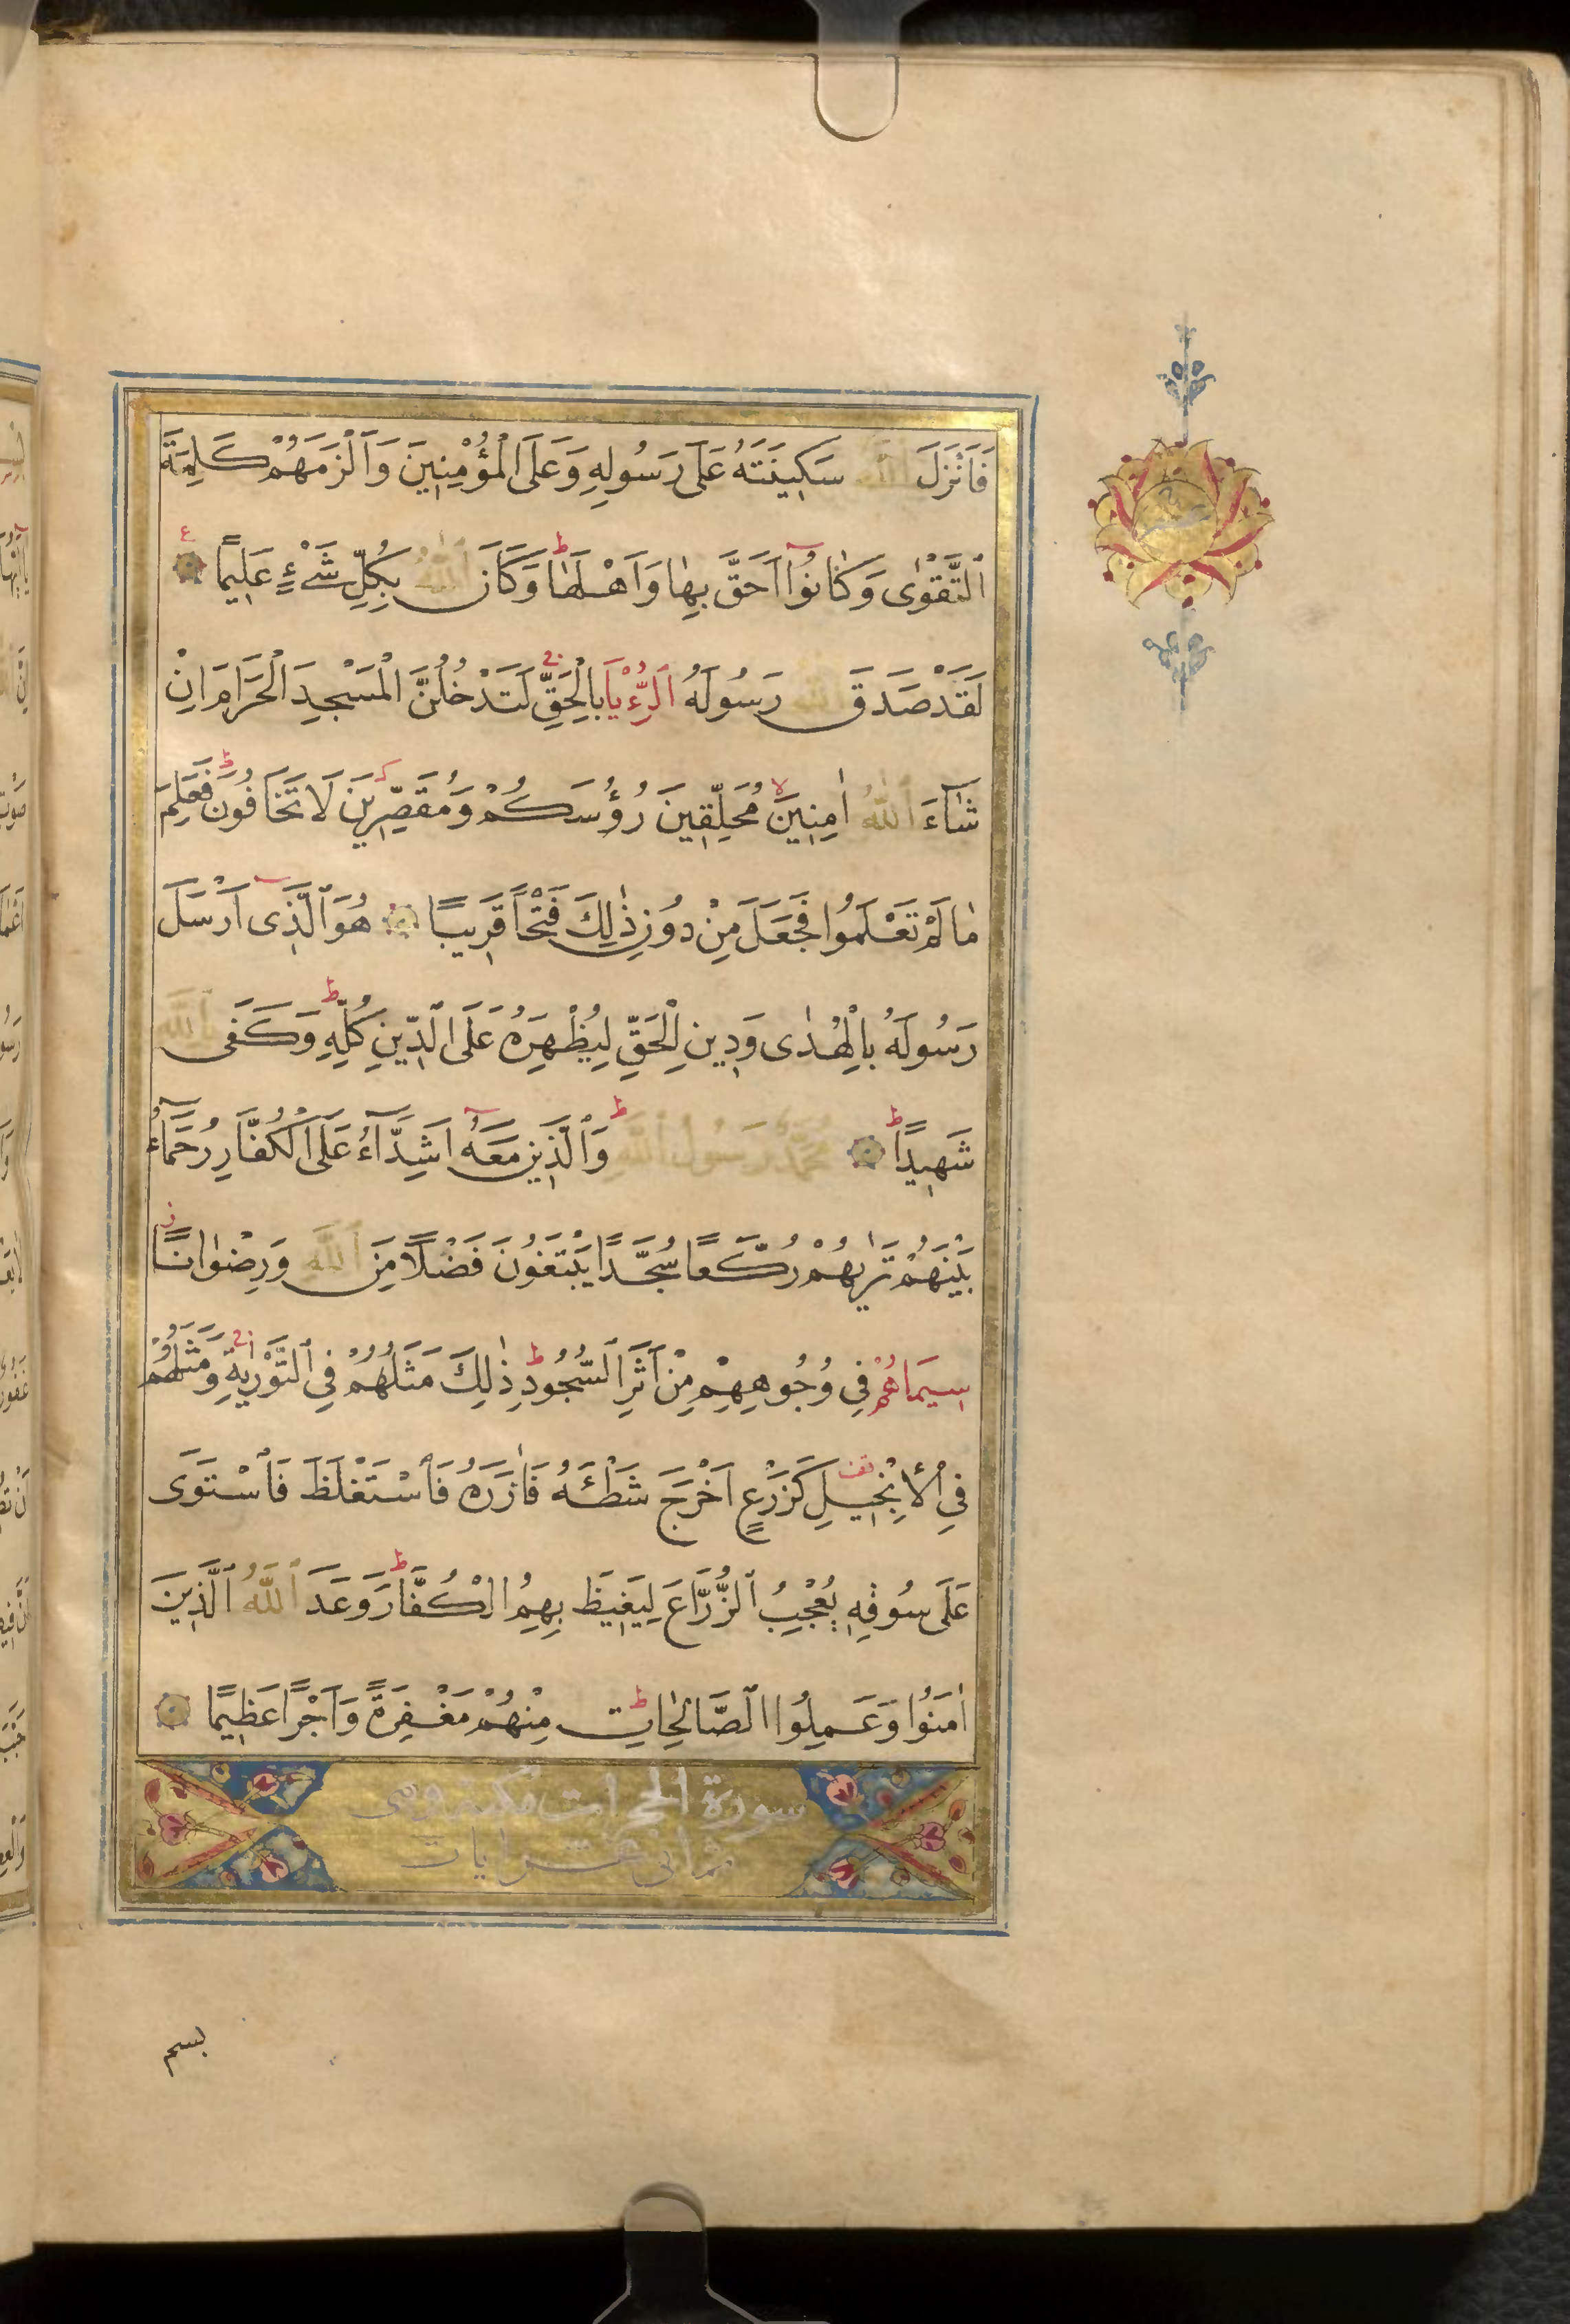 فَاَنْزَلَ اللّٰهُ سَكِينَتَهُ عَلٰى رَسُولِهِ وَعَلَى الْمُؤْمِنِينَ وَاَلْزَمَهُمْ كَلِمَةَ
ع
التَّقْوٰى وَكَانُوٓا اَحَقَّ بِهَا وَاَهْلَهَا ط وَكَانَ اللّٰهُ بِكُلِّ شَىْءٍ عَلِيمًا
لَقَدْ صَدَقَ اللّٰهُ رَسُولَهُ الرُّءْيَا بِالْحَقِّ ج لَتَدْخُلُنَّ الْمَسْجِدَ الْحَرَامَ اِنْ
شَآءَ اللّٰهُ اٰمِنِينَ لا مُحَلِّقِينَ رُؤُسَكُمْ وَمُقَصِّرِينَ لَا تَخَافُونَ ط فَعَلِمَ
مَا لَمْ تَعْلَمُوا فَجَعَلَ مِنْ دُونِ ذٰلِكَ فَتْحًا قَرِيبًا هُوَ الَّذِىٓ اَرْسَلَ
رَسُولَهُ بِالْهُدٰى وَدِينِ الْحَقِّ لِيُظْهِرَهُ عَلَى الدِّينِ كُلِّهِ ط وَكَفٰى بِاللّٰهِ
شَهِيدًا ط مُحَمَّدٌ رَسُولُ اللّٰهِ ط وَالَّذِينَ مَعَهُٓ اَشِدَّآءُ عَلَى الْكُفَّارِ رُحَمَآءُ
بَيْنَهُمْ تَرٰيهُمْ رُكَّعًا سُجَّدًا يَبْتَغُونَ فَضْلًا مِنَ اللّٰهِ وَرِضْوَانًا ز
سِيمَاهُمْ فِى وُجُوهِهِمْ مِنْ اَثَرِ السُّجُودِ ط ذٰلِكَ مَثَلُهُمْ فِى التَّوْرٰيةِ ج وَمَثَلُهُمْ
فِى الْاِنْجِيلِ قف كَزَرْعٍ اَخْرَجَ شَطْـَٔهُ فَاٰزَرَهُ فَاسْتَغْلَظَ فَاسْتَوٰى
عَلٰى سُوقِهِ يُعْجِبُ الزُّرَّاعَ لِيَغِيظَ بِهِمُ الْكُفَّارَ ط وَعَدَ اللّٰهُ الَّذِينَ
اٰمَنُوا وَعَمِلُوا الصَّالِحَاتِ ط مِنْهُمْ مَغْفِرَةً وَاَجْرًا عَظِيمًا
سورة الحجرات مكية وهى
ثمانى عشر ايات
بسم